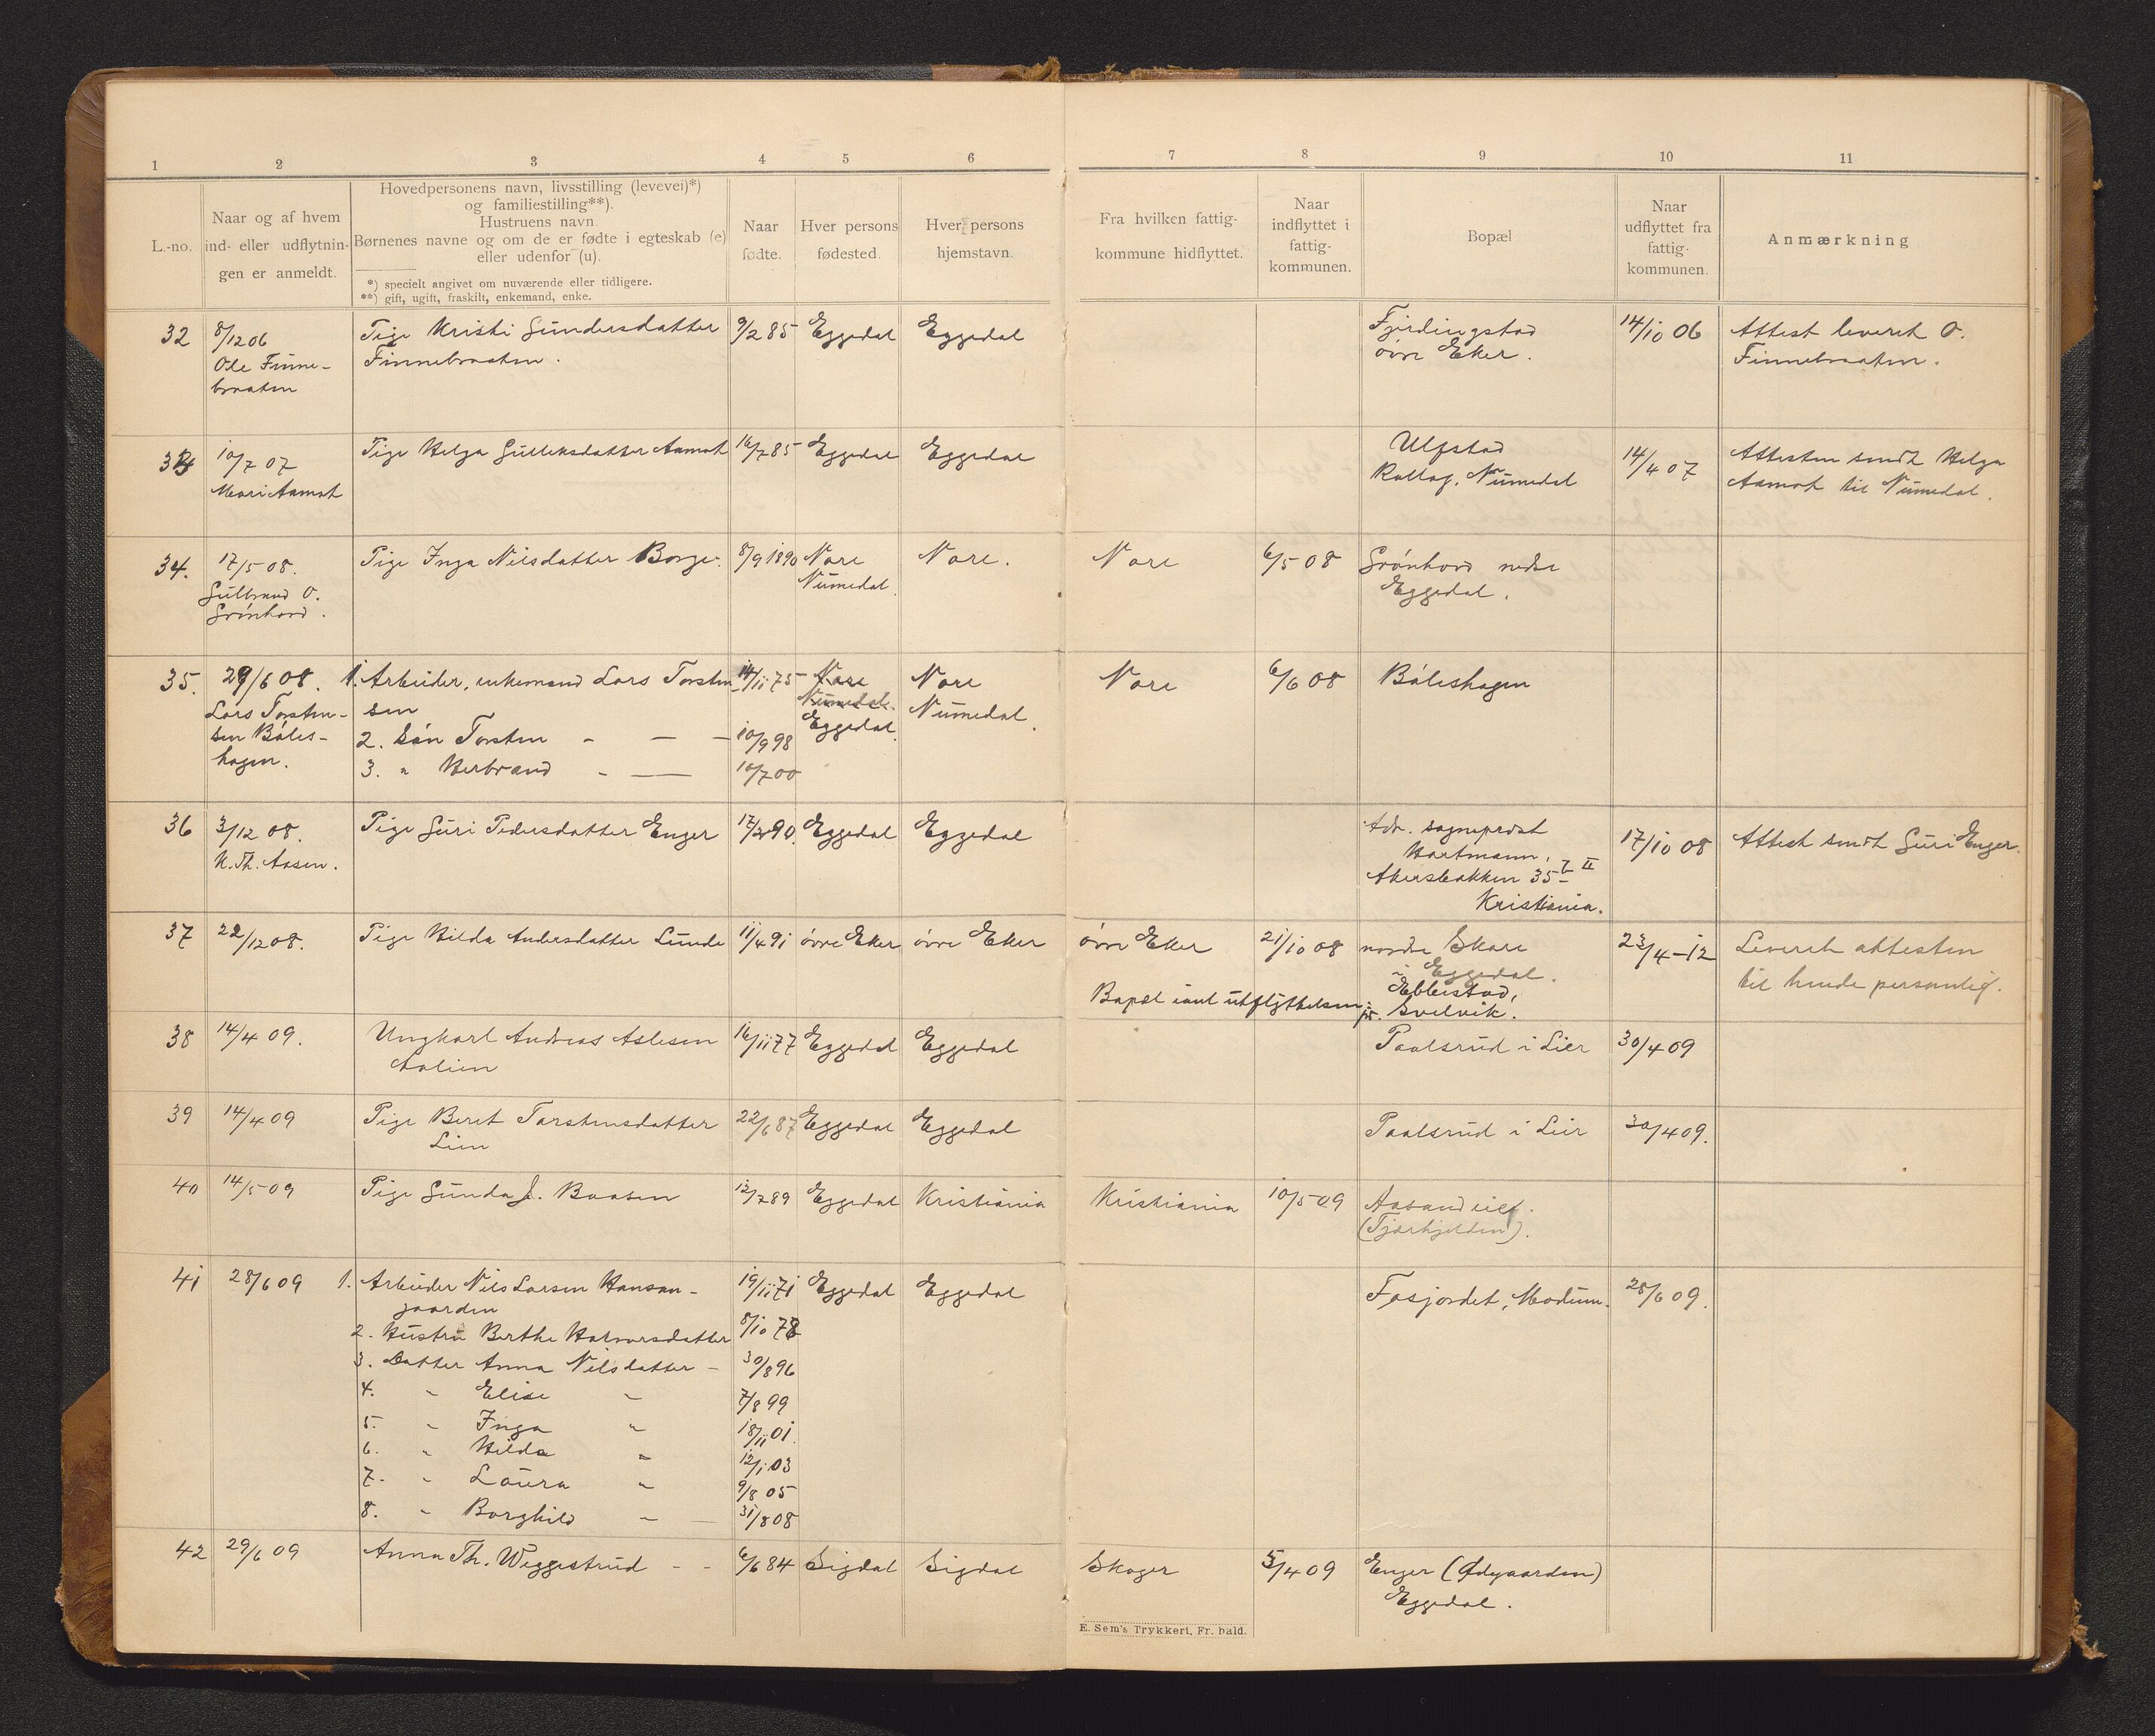 1 2 3 4 5 6 7 8 9 10 11
L.-no.
Naar og af hvem
ind- eller udflytnin-
gen er anmeldt.
Hovedpersonens navn, livsstilling (levevei)*)
og familiestilling**).
Hustruens navn.
Børnenes navne og om de er fødte i egteskab (e)
eller udenfor (u).
*) specielt angivet om nuværende eller tidligere.
**) gift, ugift, fraskilt, enkemand, enke.
Naar
fødte.
Hver persons
fødested.
Hver persons
hjemstavn.
Fra hvilken fattig-
kommune hidflyttet.
Naar
indflyttet i
fattig-
kommunen.
Bopæl
Naar
udflyttet fra
fattig-
kommunen.
Anmærkning
32
8/12 06
Ole Finne-
braaten
Pige Kristi Gundersdatter
Finnebraaten.
9/2 85
Eggedal
Eggedal
Fjerdingstad
øvre Eker.
14/10 06
Attest leveret O.
Finnebraaten.
33
10/7 07
Mari Aamot
Pige Helga Gulleksdatter Aamot
16/7 85
Eggedal
Eggedal
Ulfstad
Rollag, Numedal
14/4 07
Attesten sendt Helga
Aamot til Numedal.
34.
17/5 08.
Gulbrand O.
Grönhovd.
Pige Inga Nilsdatter Borge.
8/9 1890
Nore
Numedal.
Nore.
Nore
6/5 08
Grönhovd nedre
Eggedal.
35.
29/6 08.
Lars Torsten-
sen Båles-
hagen.
1. Arbeider, enkemand Lars Torsten-
sen
2. Søn Torsten - - -
3. " Herbrand - -
14/11 75
10/9 98
10/7 00
Nore
Numedal.
Eggedal.
Nore
Numedal.
Nore
6/6 08
Båleshagen
36
3/12 08.
N. Th. Aasen.
Pige Guri Pedersdatter Enger
17/2 90.
Eggedal
Eggedal
Adr. sogneprest
Hartmann,
Akersbakken 35 b II
Kristiania.
17/10 08
Attest sendt Guri Enger.
37
22/12 08.
Pige Hilda Andersdatter Lunde
11/4 91
øvre Eker
øvre Eker
øvre Eker
21/10 08
nordre Skare
i Eggedal.
Bopæl utflyttelsen:
Ebbestad,
pr. Svelvik.
23/4-12
Leveret attesten
til hende personlig.
38
14/4 09.
Ungkarl Andreas Aslesen
Aalien
16/11 77
Eggedal
Eggedal
Paalsrud i Lier
30/4 09
39
14/4 09
Pige Beret Torstensdatter
Lien
22/6 87
Eggedal
Eggedal
Paalsrud i Lier
30/4 09.
40
14/5 09
Pige Gunda J. Braaten
12/7 89
Eggedal
Kristiania
Kristiania
10/5 09
Aasand
(Tjernkjelden).
41
28/6 09
1. Arbeider Nils Larsen Hansen-
gaarden
2. Hustru Berthe Halvorsdatter
3. Datter Anna Nilsdatter -
4. " Elise "
5. " Inga "
6. " Hilda "
7. " Laura "
8. " Borghild -
19/11 71
8/10 78
30/8 96
7/8 99
18/11 01.
12/1 03
9/8 05
31/8 08
Eggedal
Eggedal
Fosjordet, Modum.
28/6 09.
42
29/6 09
Anna Th. Wæggestrud - -
6/6 84
Sigdal
Sigdal
Skoger
5/4 09
Enger (Ødegaarden)
Eggedal.
E. Sem's Trykkeri, Fr. hald.